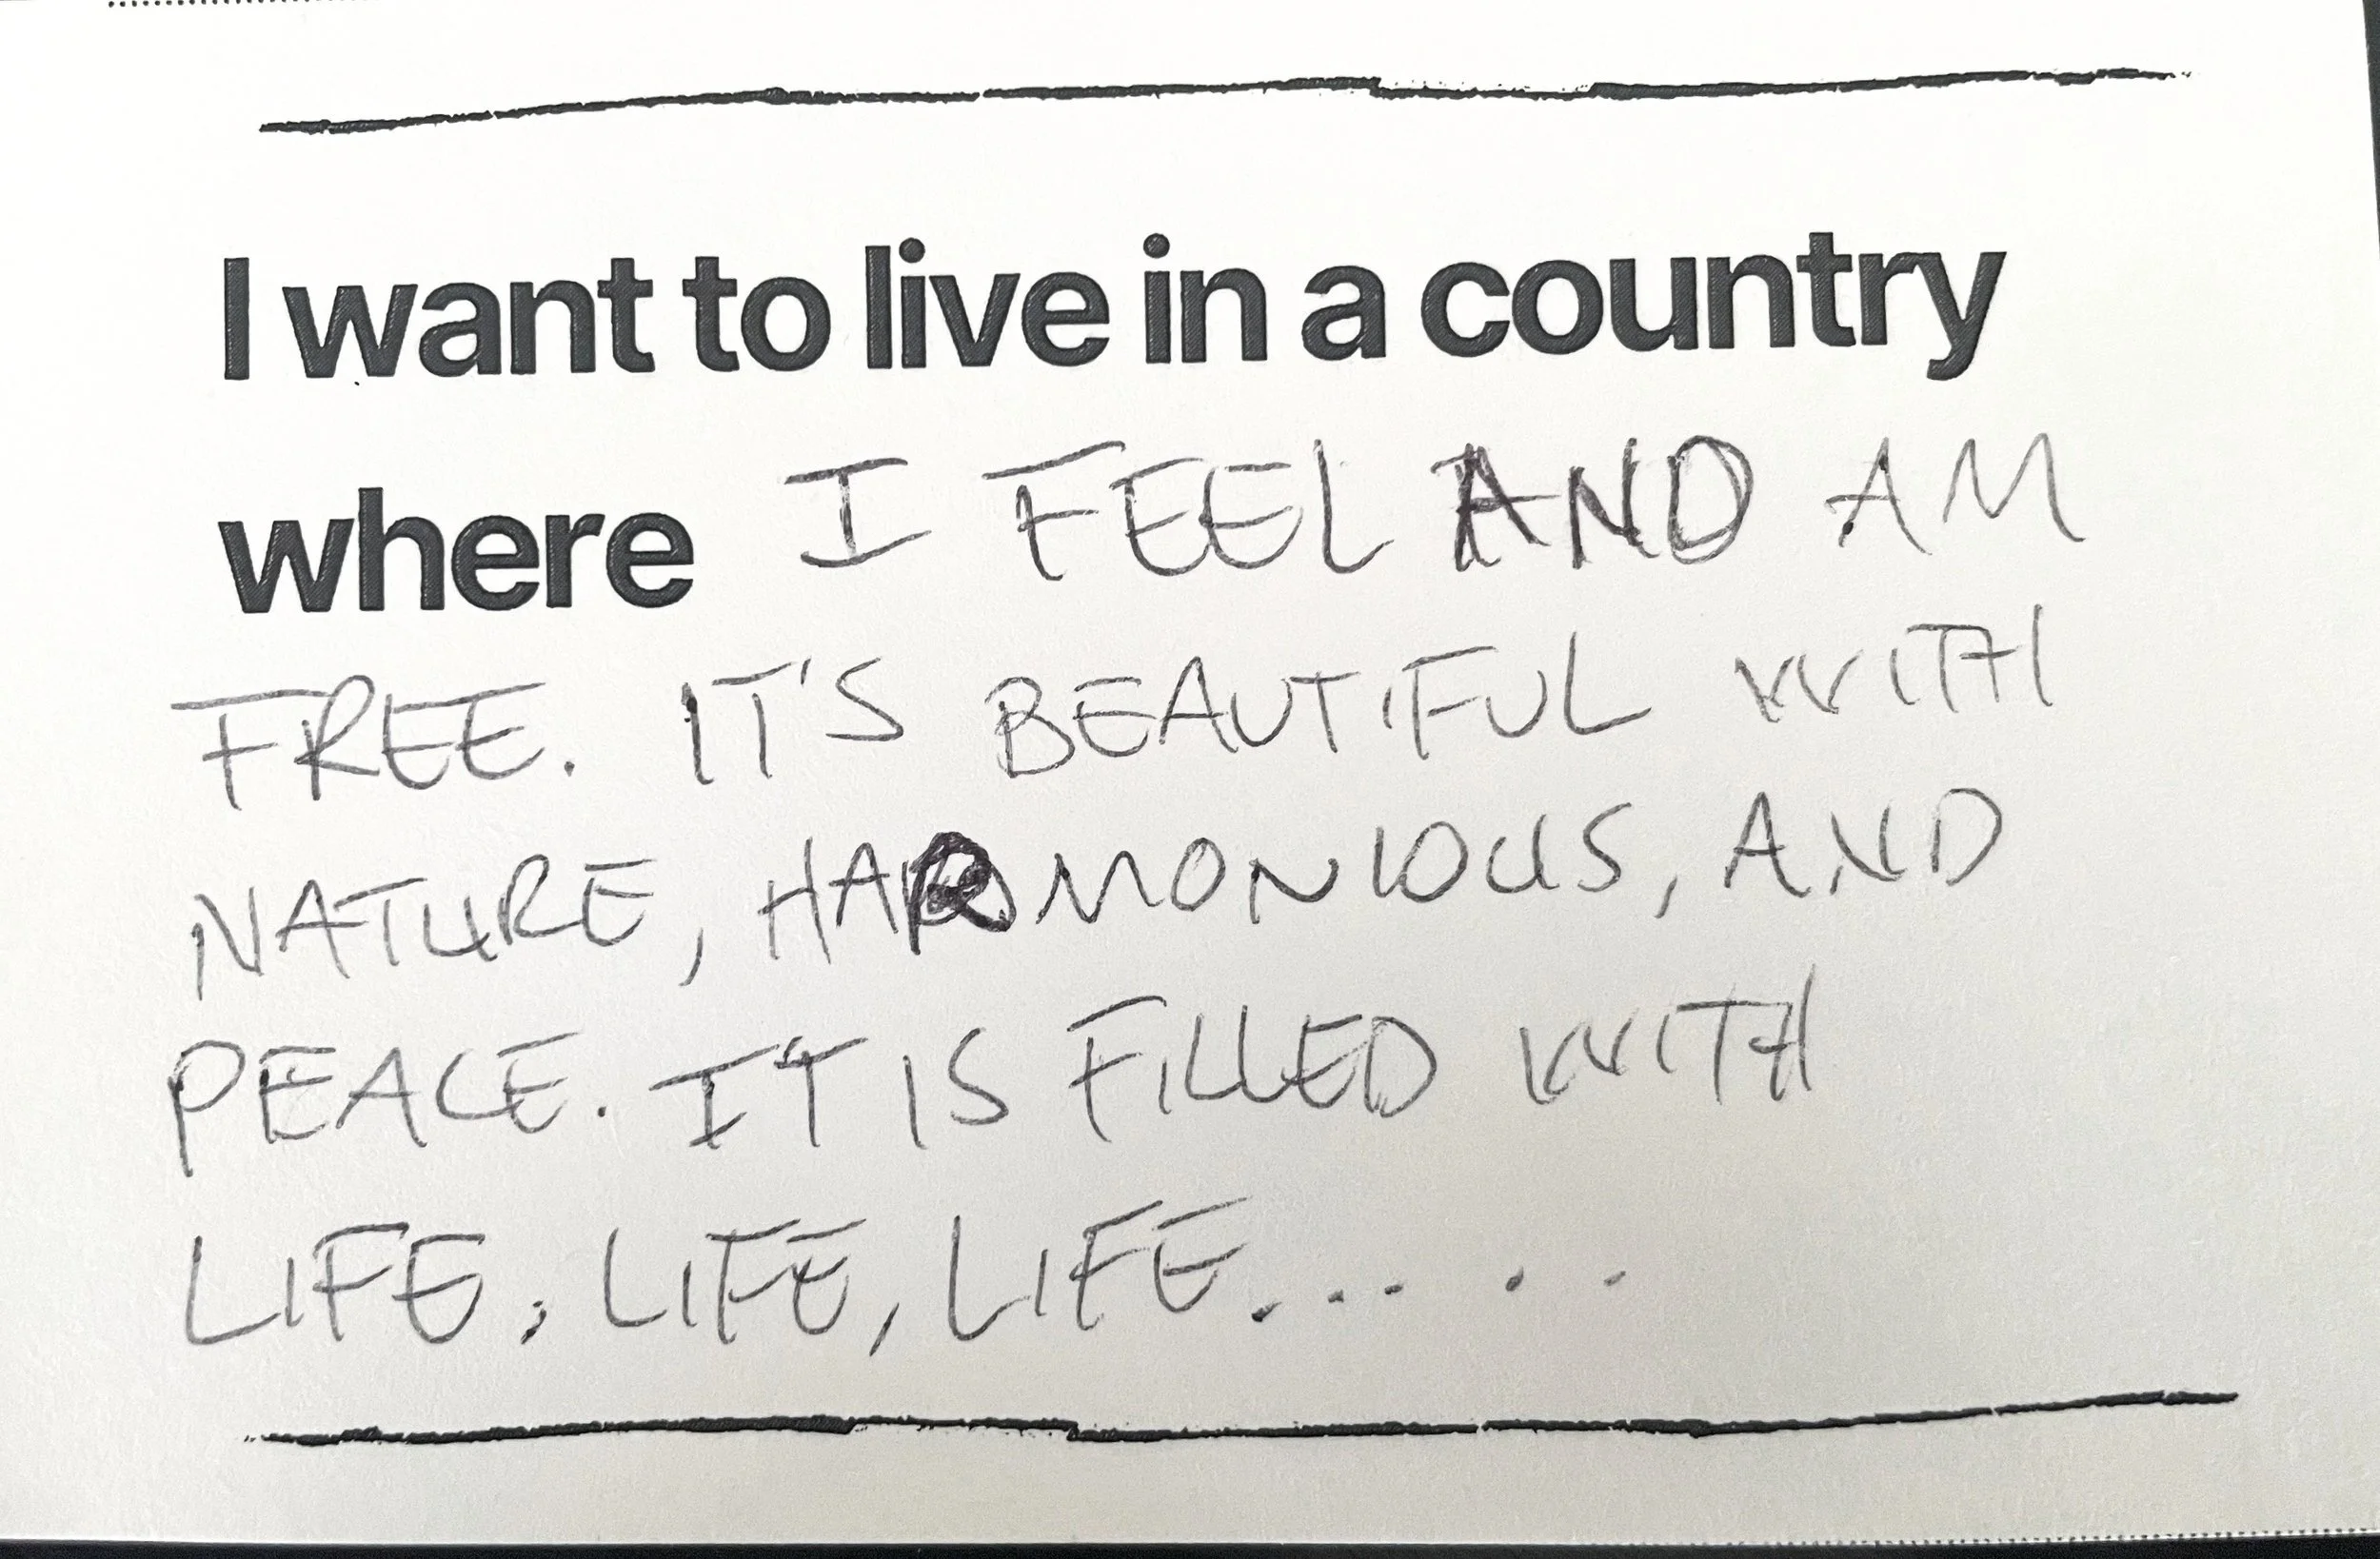 I want to live in a country
where I FEEL AND AM
FREE. IT'S BEAUTIFUL WITH
NATURE, HARMONIOUS, AND
PEACE. IT IS FILLED WITH
LIFE, LIFE, LIFE.... . .